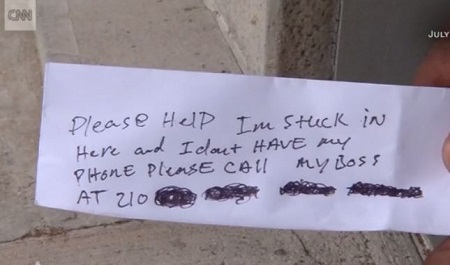 CNN
JULY
Please Help Im stuck in
Here and I dont HAVE my
PHONE Please CALL MY BOSS
AT 210